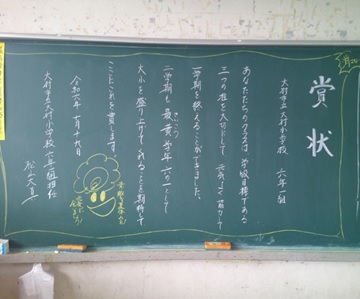 賞状
大村市立大村小学校 六年一組
あなたたちのクラスは 学級目標である
三つの花を大切にして 元気よく 協力して
一学期を終えることができました。
二学期も 最高学年 六の一として
大小を盛り上げてくれることを期待して
ここにこれを賞します
令和六年 七月十九日
大村市立大村小学校 六年一組担任